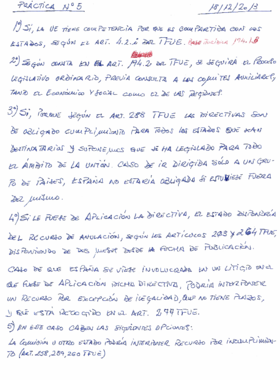 PRÁCTICA Nº 5    18/12/2013
1º) SI, LA UE TIENE COMPETENCIA POR QUE ES COMPARTIDA CON LOS
ESTADOS, SEGÚN EL ART. 4.2.i DEL TFUE,
2º) SEGÚN CONSTA EN EL ART. 194.2 DEL TFUE, SE SEGUIRÁ EL PROCESO
LEGISLATIVO ORDINARIO, PREVIA CONSULTA A LOS COMITES AUXILIARES,
TANTO EL ECONÓMICO Y SOCIAL COMO EL DE LAS REGIONES.
3º) SI, PORQUE SEGÚN EL ART. 288 TFUE LAS DIRECTIVAS SON
DE OBLIGADO CUMPLIMIENTO PARA TODOS LOS ESTADOS QUE SEAN
DESTINATARIOS Y SUPONEMOS QUE SE HA LEGISLADO PARA TODO
EL ÁMBITO DE LA UNIÓN. CASO DE IR DIRIGIDA SÓLO A UN GRU-
PO DE PAÍSES, ESPAÑA NO ESTARÍA OBLIGADA SI ESTUVIESE FUERA
DEL MISMO.
4º) SI LE FUESE DE APLICACIÓN LA DIRECTIVA, EL ESTADO DISPONDRÍA
DEL RECURSO DE ANULACIÓN, SEGÚN LOS ARTÍCULOS 263 Y 264 TFUE,
DISPONIENDO DE DOS MESES DESDE LA FECHA DE PUBLICACIÓN.
CASO DE QUE ESPAÑA SE VIESE INVOLUCRADA EN UN LITIGIO EN EL
QUE FUESE DE APLICACIÓN DICHA DIRECTIVA, PODRÍA INTERPONER
UN RECURSO POR EXCEPCIÓN DE ILEGALIDAD, QUE NO TIENE PLAZOS,
Y QUE ESTÁ RECOGIDO EN EL ART. 277 TFUE.
5) EN ESTE CASO CABEN LAS SIGUIENTES OPCIONES:
LA COMISIÓN U OTRO ESTADO PODRÍA INTERPONER RECURSO POR INCUMPLIMIEN-
TO (ART. 258, 259, 260 TFUE)